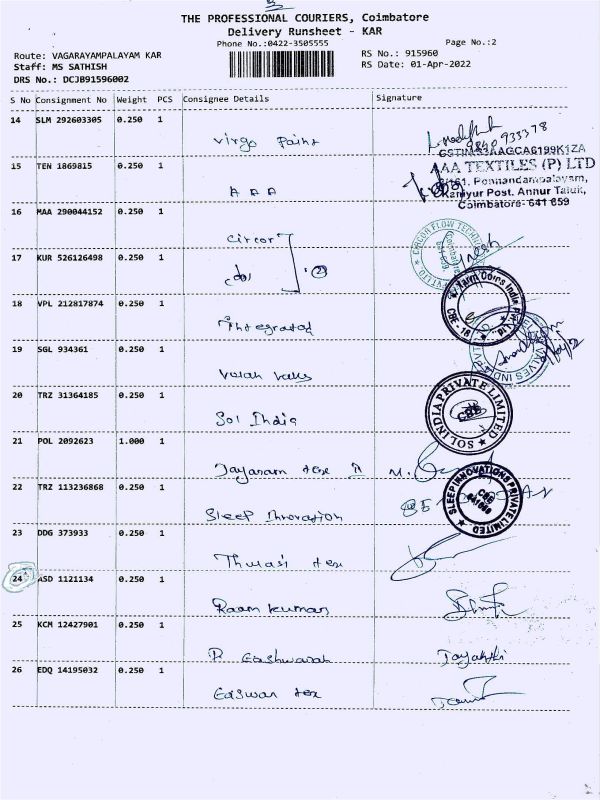 THE PROFESSIONAL COURIERS, Coimbatore
Delivery Runsheet - KAR
Phone No.:0422-3505555
Page No.:2
Route: VAGARAYAMPALAYAM KAR
RS No.: 915960
Staff: MS SATHISH
RS Date: 01-Apr-2022
DRS No.: DCJB91596002
S No Consignment No Weight PCS Consignee Details Signature
14 SLM 292603305 0.250 1
Virgo Paint
GSTIN:33AAGCA6199K1ZA
15 TEN 1869815 0.250 1
AAA TEXTILES (P) LTD
Ponnandampalayam,
A A A
Kaniyur Post. Annur Taluk,
Coimbatore- 641 659
16 MAA 290044152 0.250 1
Circor
17 KUR 526126498 0.250 1
18 VPL 212817874 0.250 1
Integrated
19 SGL 934361 0.250 1
20 TRZ 31364185 0.250 1
Sol India
SOL INDIA PRIVATE LIMITED
21 POL 2092623 1.000 1
Jayaram tex
22 TRZ 113236868 0.250 1
Sleep Innovation
SLEEP INNOVATIONS PRIVATE LIMITED
23 DDG 373933 0.250 1
Thulasi tex
24 ASD 1121134 0.250 1
Raam kumar
25 KCM 12427901 0.250 1
P Eashwarah
26 EDQ 14195032 0.250 1
Easwar tex